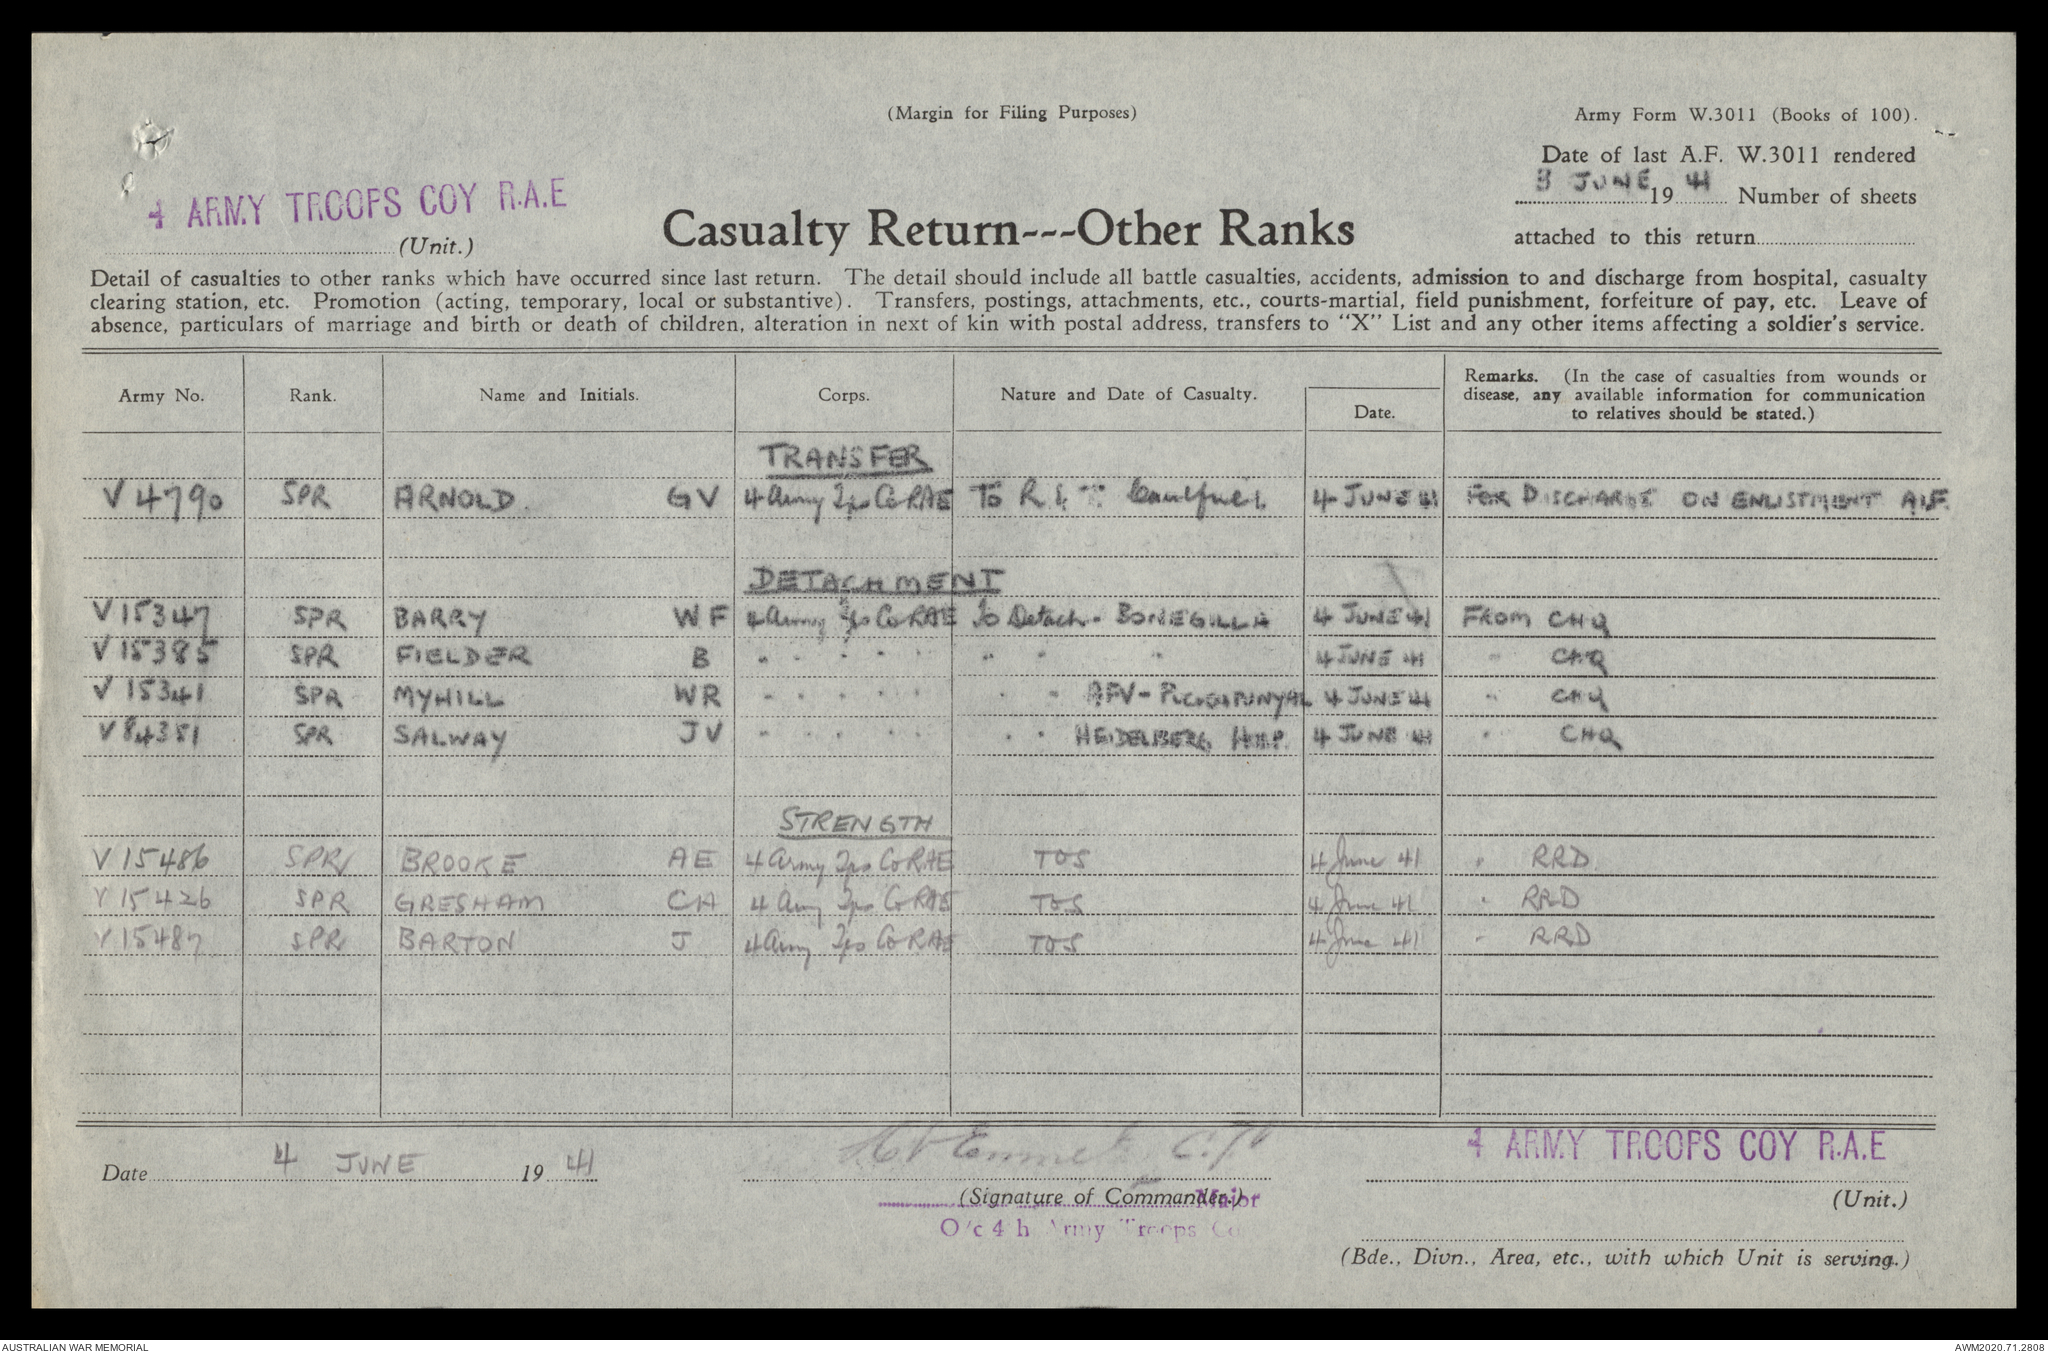 (Margin for Filing Purposes)
Army Form W.3011 (Books of 100).
Date of last A.F. W.3011 rendered
3 JUNE 19 41 Number of sheets
attached to this return
4 ARMY TROOPS COY R.A.E
(Unit.)
Casualty Return---Other Ranks
Detail of casualties to other ranks which have occurred since last return. The detail should include all battle casualties, accidents, admission to and discharge from hospital, casualty
clearing station, etc. Promotion (acting, temporary, local or substantive). Transfers, postings, attachments, etc., courts-martial, field punishment, forfeiture of pay, etc. Leave of
absence, particulars of marriage and birth or death of children, alteration in next of kin with postal address, transfers to "X" List and any other items affecting a soldier's service.
Army No. Rank. Name and Initials. Corps. Nature and Date of Casualty. Date. Remarks. (In the case of casualties from wounds or
disease, any available information for communication
to relatives should be stated.)
TRANSFER
V 4790 SPR ARNOLD. G V 4 Army Tps Co RAE To R Caulfield 4 JUNE 41 FOR DISCHARGE ON ENLISTMENT AIF
DETACHMENT
V 15347 SPR BARRY W F 4 Army Tps Co RAE To Detach - BONEGILLA 4 JUNE 41 FROM CHQ
V 15385 SPR FIELDER B " " " " " " " " 4 JUNE 41 " CHQ
V 15341 SPR MYHILL WR " " " " " " " AFV - PUCKAPUNYAL 4 JUNE 41 " CHQ
V 84351 SPR SALWAY J V " " " " " " " HEIDELBERG HOSP. 4 JUNE 41 " CHQ
STRENGTH
V 15486 SPR BROOKE A E 4 Army Tps Co RAE TOS 4 June 41 " RRD
V 15426 SPR GRESHAM C H 4 Army Tps Co RAE TOS 4 June 41 " RRD
V 15487 SPR BARTON J 4 Army Tps Co RAE TOS 4 June 41 " RRD
Date 4 JUNE 19 41
(Signature of Commander.)
Major
O/c 4 h Army Troops Co
4 ARMY TROOPS COY R.A.E
(Unit.)
(Bde., Divn., Area, etc., with which Unit is serving.)
AUSTRALIAN WAR MEMORIAL
AWM2020.71.2808